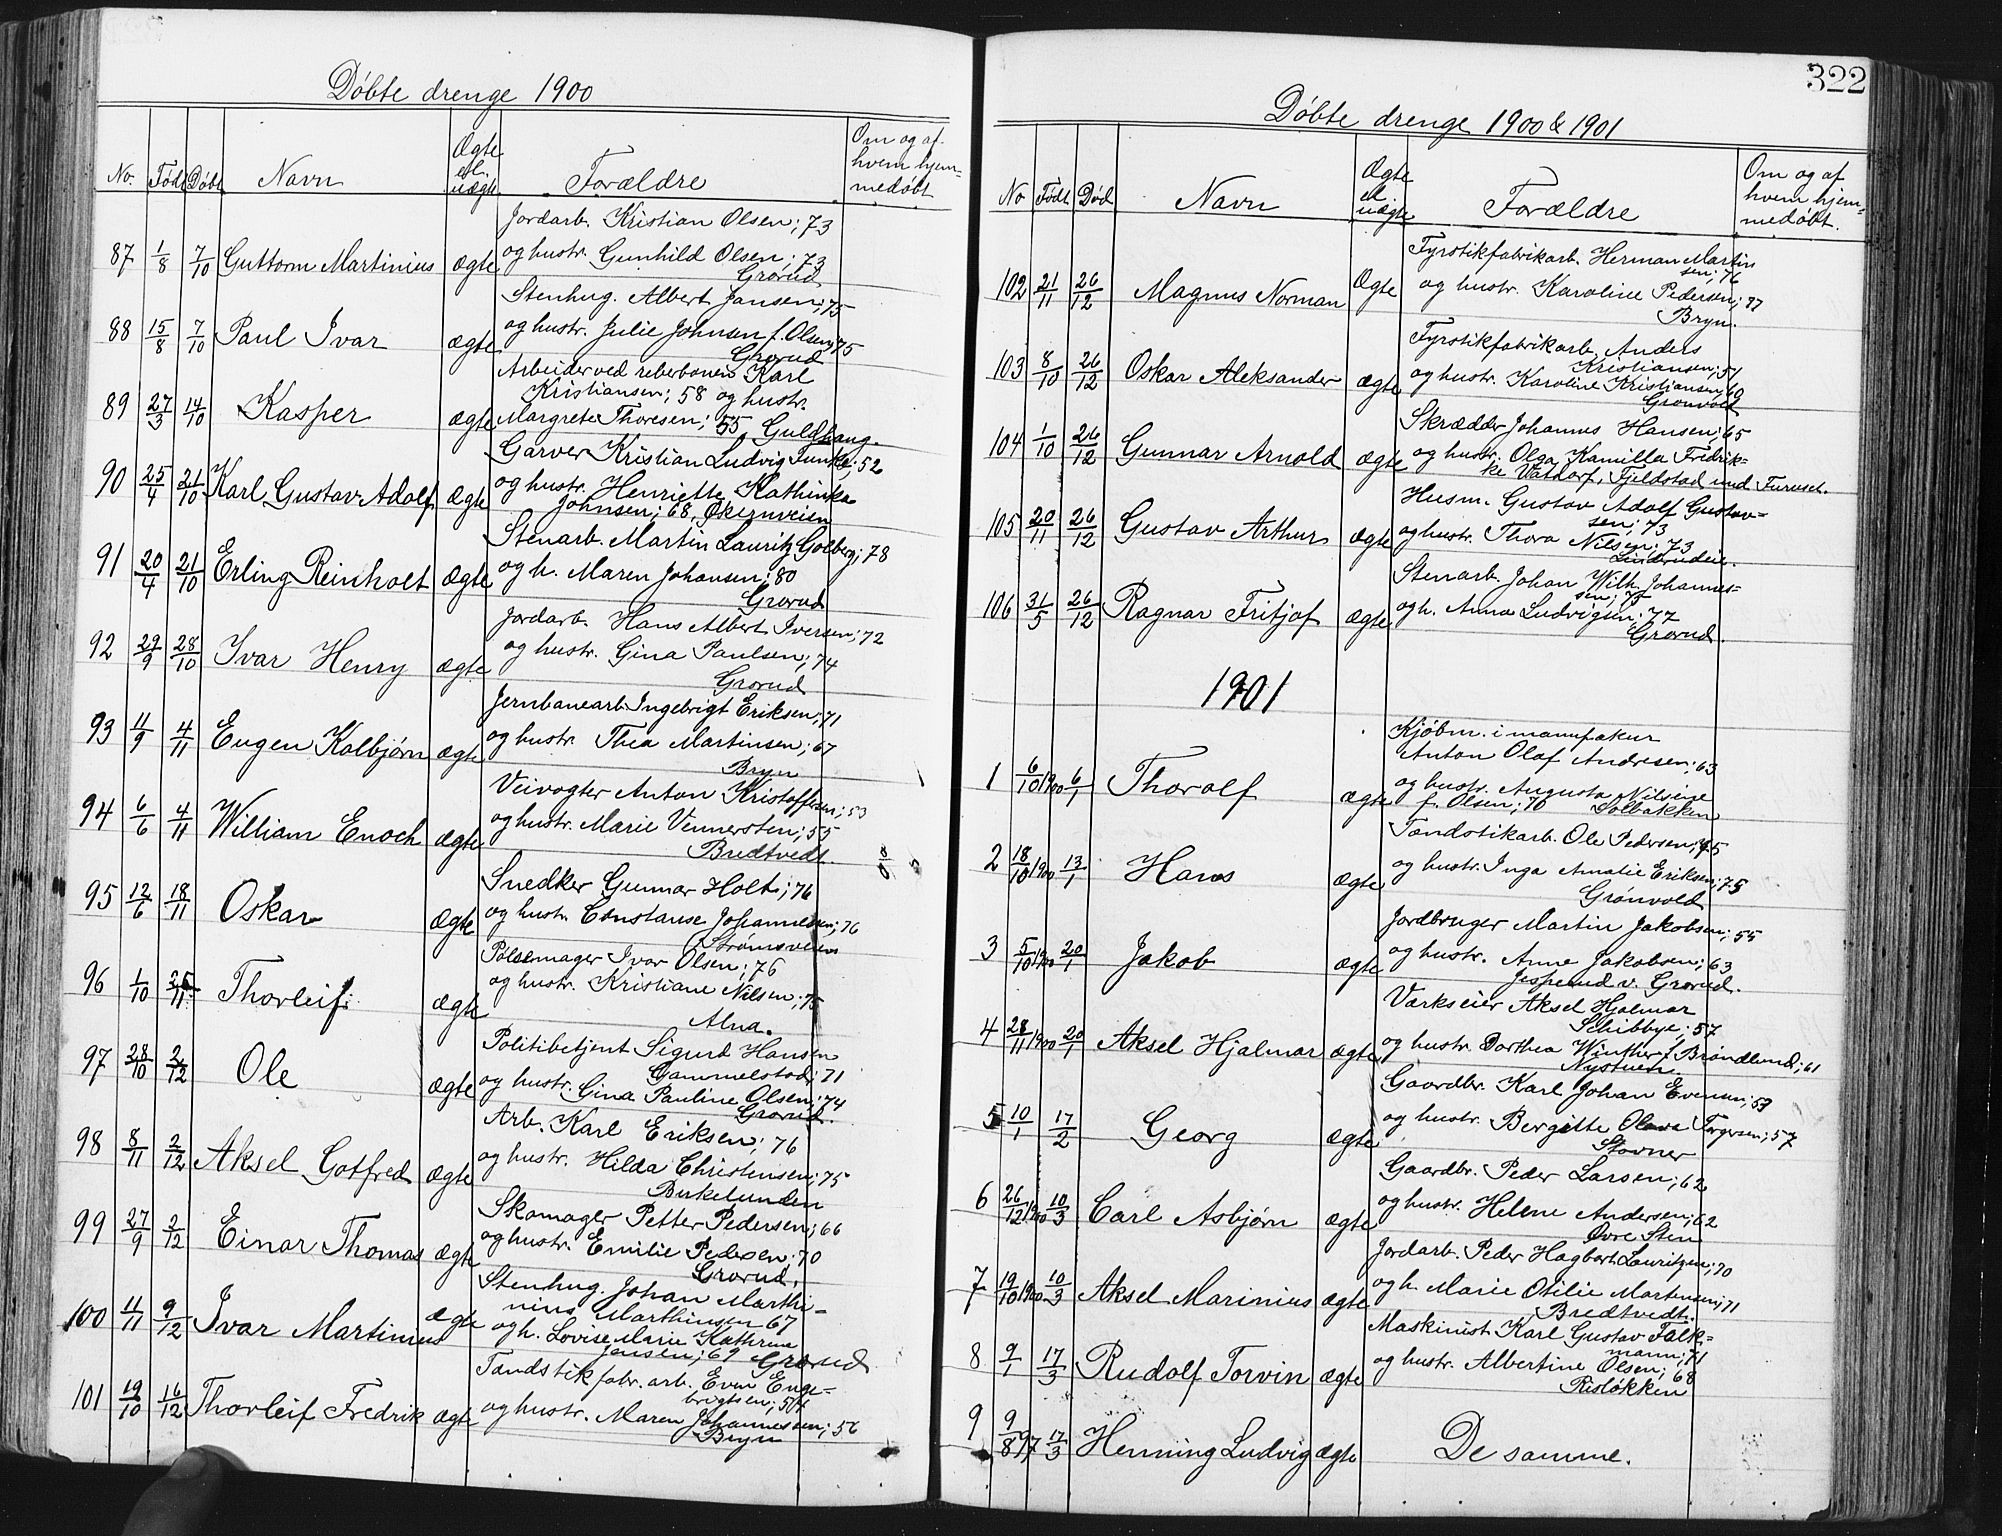 Døbte drenge 1900
No. Født Døbt Navn Ægte el. uægte Forældre Om og af hvem hjemmedøbt
87 1/8 7/10 Guttorm Martinius ægte Jordarb. Kristian Olsen; 73
og hustr. Gunhild Olsen; 73
Grorud
88 15/8 7/10 Paul Ivar ægte Stenhug. Albert Jansen; 75
og hustr. Julie Johnsen f. Olsen; 75
Grorud
89 27/3 14/10 Kasper ægte Arbeider ved reberbanen Karl
Kristiansen; 58 og hustr.
Margrete Thoresen; 55 Guldhaug.
90 25/4 21/10 Karl Gustav Adolf ægte Garver Kristian Ludvig Funke; 52
og hustr. Henriette Kathinka
Johnsen; 68, Økernveien
91 20/4 21/10 Erling Reinholt ægte Stenarb. Martin Lauritz Golberg; 78
og h. Maren Johansen; 80
Grorud
92 29/9 28/10 Ivar Henry ægte Jordarb. Hans Albert Iversen; 72
og hustr. Gina Paulsen; 74
Grorud
93 11/9 4/11 Eugen Kolbjørn ægte Jernbanearb. Ingebrigt Eriksen; 71
og hustr. Thea Martinsen; 67
Bryn
94 6/6 4/11 William Enoch ægte Veivogter Anton Kristoffersen; 53
og hustr. Marie Vennersten; 55
Bredtvedt.
95 12/6 18/11 Oskar ægte Snedker Gunnar Holt; 76
og hustr. Constanse Johannessen; 76
Strømsveien
96 1/10 25/11 Thorleif ægte Pølsemager Ivar Olsen; 76
og hustr. Kristiane Nilsen; 75
Alna.
97 28/10 2/12 Ole ægte Politibetjent Sigurd Hansen
Gammelstad; 71
og hustr. Gina Pauline Olsen; 74
Grorud.
98 8/11 2/12 Aksel Gotfred ægte Arb. Karl Eriksen; 76
og hustr. Hilda Christensen; 75
Birkelunden
99 27/9 2/12 Einar Thomas ægte Skomager Petter Pedersen; 66
og hustr. Emilie Pedersen; 70
Grorud.
100 11/11 9/12 Ivar Martinius ægte Stenhug. Johan Marthi-
nius Marthinsen 67
og h. Lovise Marie Kathrine
Jensen; 69 Grorud
101 19/10 16/12 Thorleif Fredrik ægte Tændstikfabr. arb. Even Enge-
brigtsen; 54
og hustr. Maren Johannessen; 56
Bryn
322
Døbte drenge 1900 & 1901
No Født Død Navn Ægte el uægte Forældre Om og af hvem hjemmedøbt.
102 21/11 26/12 Magnus Norman Ægte Fyrstikfabrikarb. Herman Martin
sen; 76
og hustr. Karoline Pedersen; 77
Bryn.
103 8/10 26/12 Oskar Aleksander ægte Fyrstikfabrikarb. Anders
Kristiansen; 51
og hustr. Karoline Kristiansen; 60
Grønvold
104 1/10 26/12 Gunnar Arnold ægte Skrædder Johannes Hansen; 65
og hustr. Olga Kamilla Fredrik-
ke Vatdorf, Fjeldstad und Furuset.
105 20/11 26/12 Gustav Arthur ægte Husm. Gustav Adolf Gustav-
sen; 73
og hustr. Thora Nilsen; 73
Linderudeie.
106 31/5 26/12 Ragnar Fritjof ægte Stenarb. Johan Wilh. Johannes-
sen; 75
og h. Anna Ludvigsen; 77
Grorud.
1901
1 6/10 1900 6/1 Thoralf ægte Kjøbm. i manufakur
Anton Olaf Andresen; 63
og hustr. Augusta Nilsine
f. Olsen; 70 Solbakken
2 18/10 1900 13/1 Hans ægte Tændstikarb. Ole Pedersen; 75
og hustr. Inga Amalie Eriksen; 75
Grønvold
3 5/10 1900 20/1 Jakob ægte Jordbruger Martin Jakobsen; 55
og hustr. Anne Jakobsen; 63
Jesperud v. Grorud.
4 28/11 1900 20/1 Aksel Hjalmar ægte Værkseier Aksel Hjalmar
Schibbye; 57
og hustr. Dorthea Winther f. Brøndlund; 61
Nystuen
5 10/1 17/2 Georg ægte Gaardbr. Karl Johan Evensen; 59
og hustr. Bergitte Olava Torgersen; 57
Stovner
6 26/12 1900 10/3 Carl Asbjørn ægte Gaardbr. Peder Larsen; 62
og hustr. Helene Andersen; 62
Øvre Sten
7 19/10 1900 10/3 Aksel Marinius ægte Jordarb. Peder Hagbart Lauritzen; 70
og h. Marie Otilie Martensen; 71
Bredtvedt.
8 9/1 17/3 Rudolf Torvin ægte Maskinist Karl Gustav Falk-
mann; 71
og hustr. Albertine Olsen; 68
Risløkken
9 9/8 97 17/3 Henning Ludvig ægte De samme.